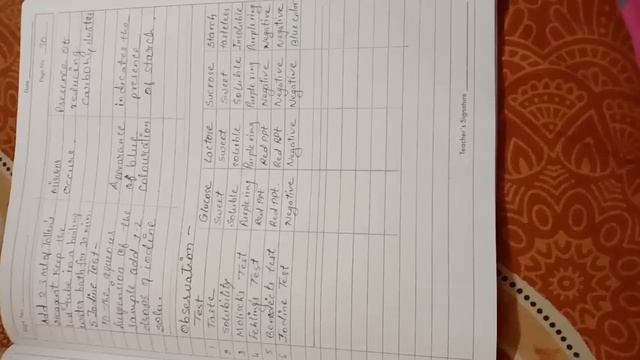 Date
Expt. No.
Page No. 30
Add 2-3 ml of Tollen's
reagent keep the
test tube in a boiling
water bath for 10 min
mirror
occurs.
Presence of
reducing
carbohydrates
5 Iodine Test-
To the aqueous
suspension of the
sample add 1-2
drops of iodine
soln.
Appearance
of blue
colouration
indicates the
presence
of starch.
Observation -
Test Glucose Lactose Sucrose Starch
1 Taste Sweet Sweet Sweet tasteless
2 Solubility Soluble soluble Soluble Insoluble
3 Molischs Test Purple ring Purple ring Purple ring Purple ring
4 Fehlings Test Red ppt. Red ppt Negative Negative
5 Benedicts test Red ppt. Red ppt Negative Negative
6 Iodine Test Negative Negative Negative Blue color
Teacher's Signature